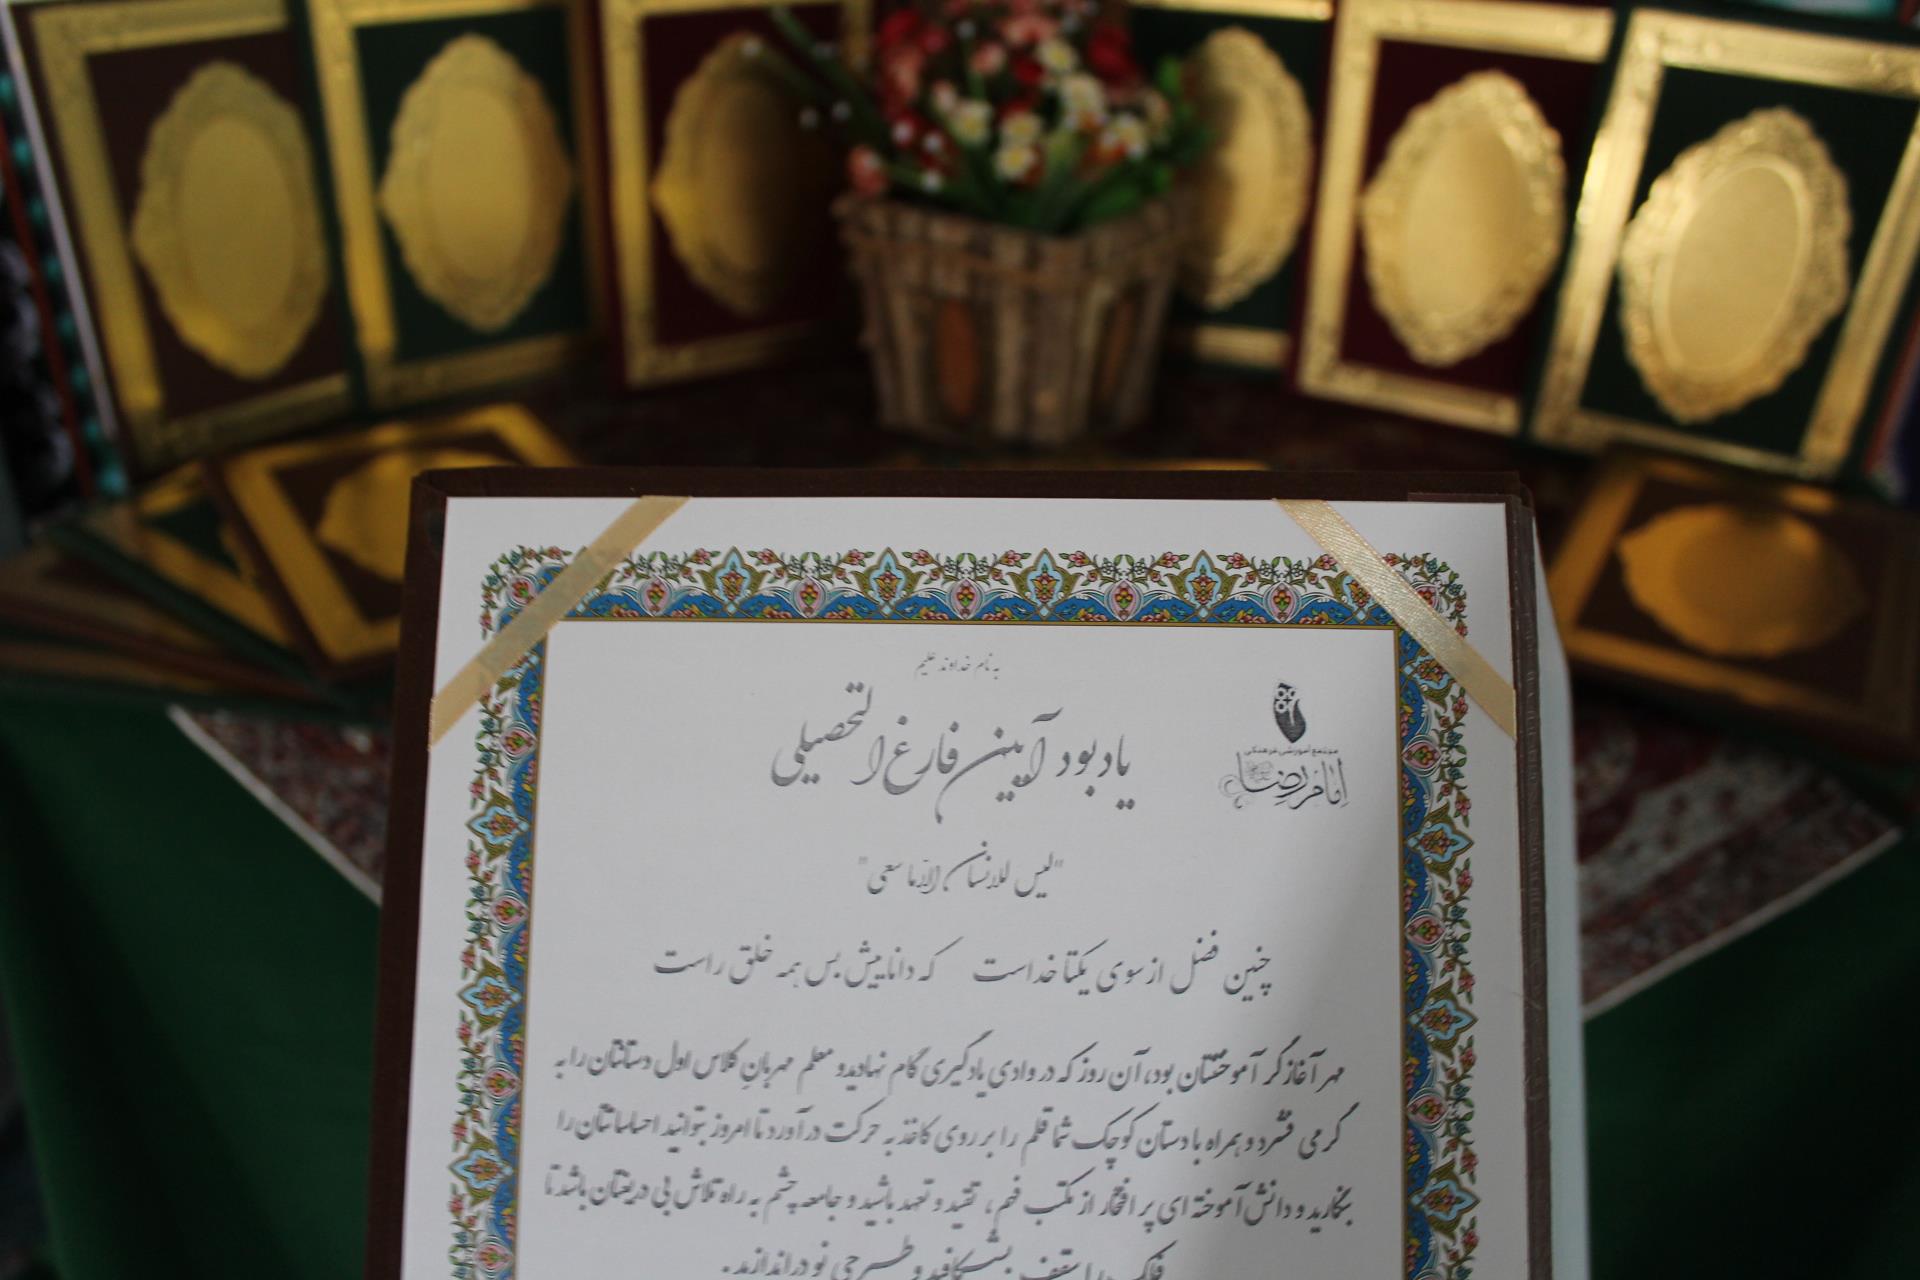 به نام خداوند علیم
یادبود آیین فارغ التحصیلی
مجتمع آموزشی فرهنگی
امام رضا
"لیس للانسان الا ما سعی"
چنین فضل از سوی یکتا خداست که دانا بیش بس همه خلق راست
مهر آغازگر آموختنتان بود، آن روز که در وادی یادگیری گام نهادید و معلم مهربانِ کلاس اول دستانتان را به
گرمی فشرد و همراه با دستان کوچک شما قلم را بر روی کاغذ به حرکت درآورد تا امروز بتوانید احساساتتان را
بنگارید و دانش آموخته ای پر افتخار از مکتب فهم، تقید و تعهد باشید و جامعه چشم به راه تلاش بی دریغتان باشد تا
فلک را سقف بشکافید و طرحی نو دراندازید.